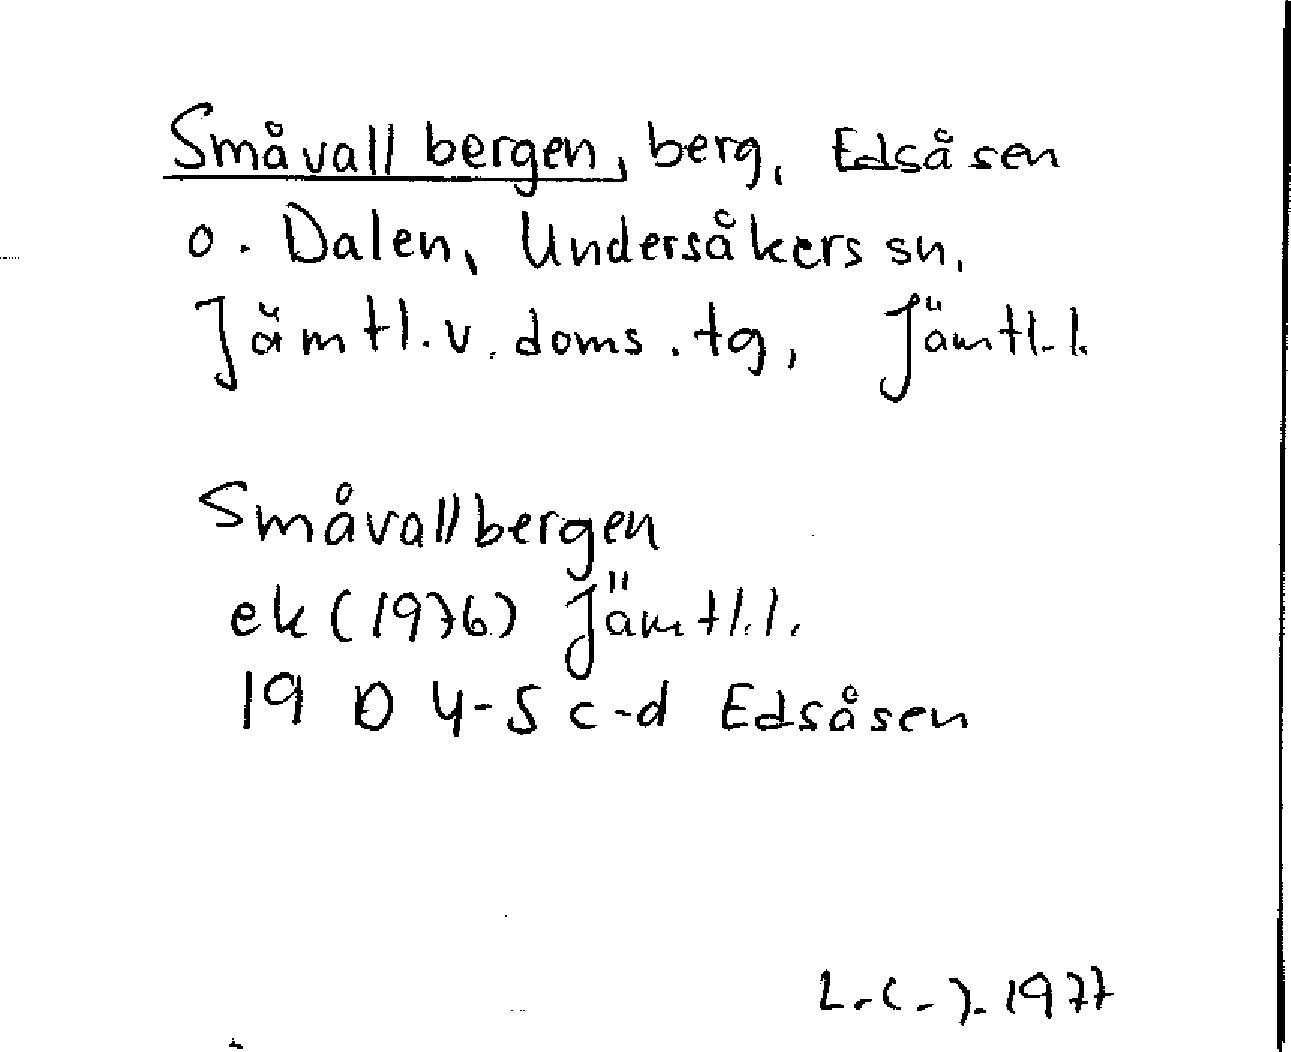 Småvallbergen, berg, Edsåsen
o. Dalen, Undersåkers sn,
Jämtl. v. doms. tg, Jämtl. l.
Småvallbergen
ek (1976) Jämtl. l.
19 D 4-5 c-d Edsåsen
1977